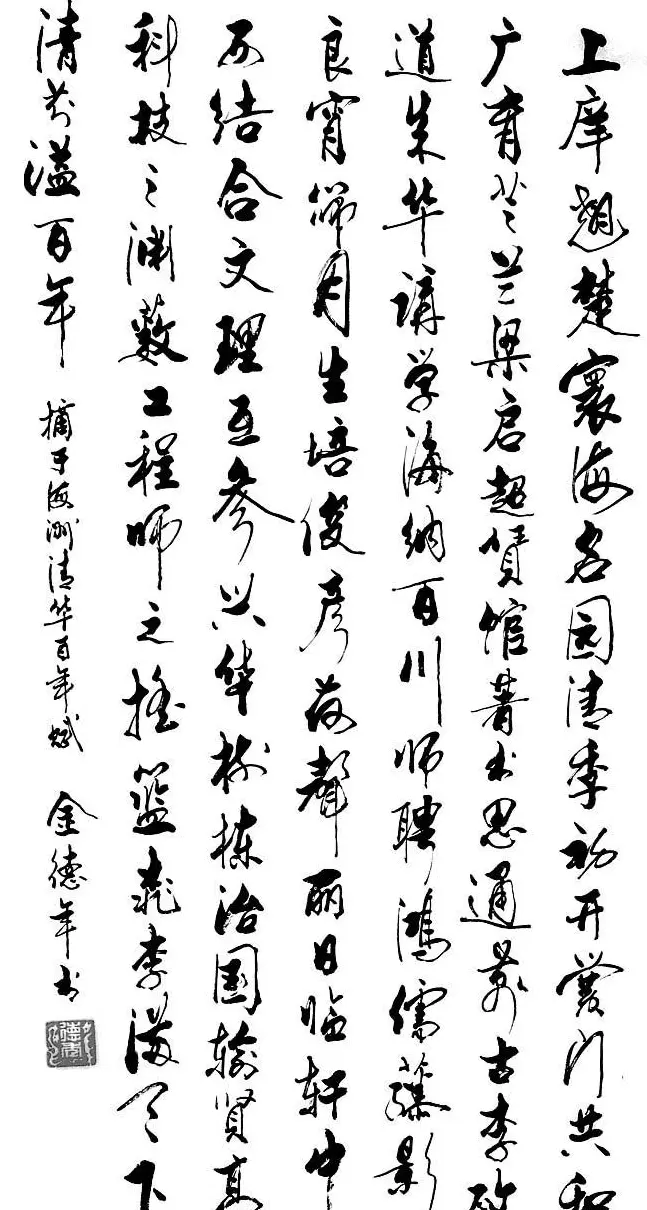 上庠翘楚寰海名园清季初开黉门共和
广育芝兰梁启超赁馆著书思通萬古李政
道来华讲学海纳百川师聘鸿儒藤影
良宵筛月生培俊彦荷聲丽日临轩中
西结合文理互参兴华树栋治國输贤真
科技之渊薮工程师之摇篮桃李满天下
清芬溢百年 摘于海洲清华百年赋 金德年书